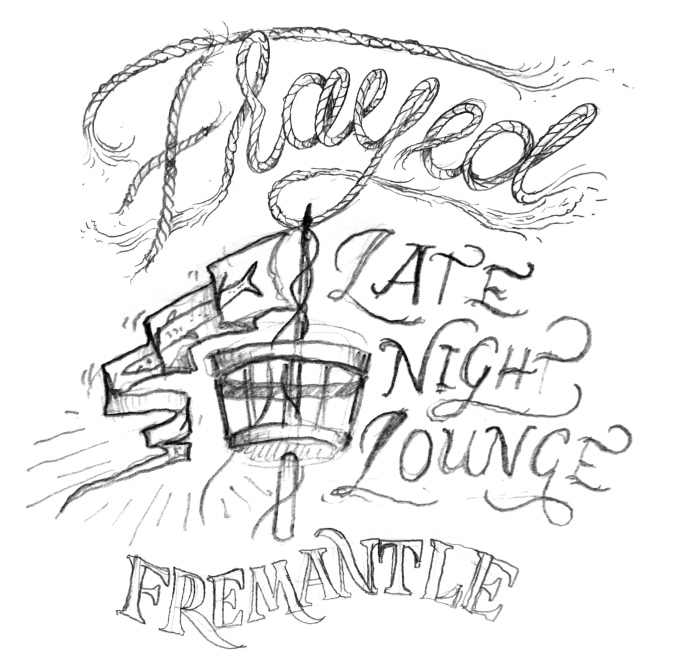 Frayed
LATE
NIGHT
LOUNGE
FREMANTLE